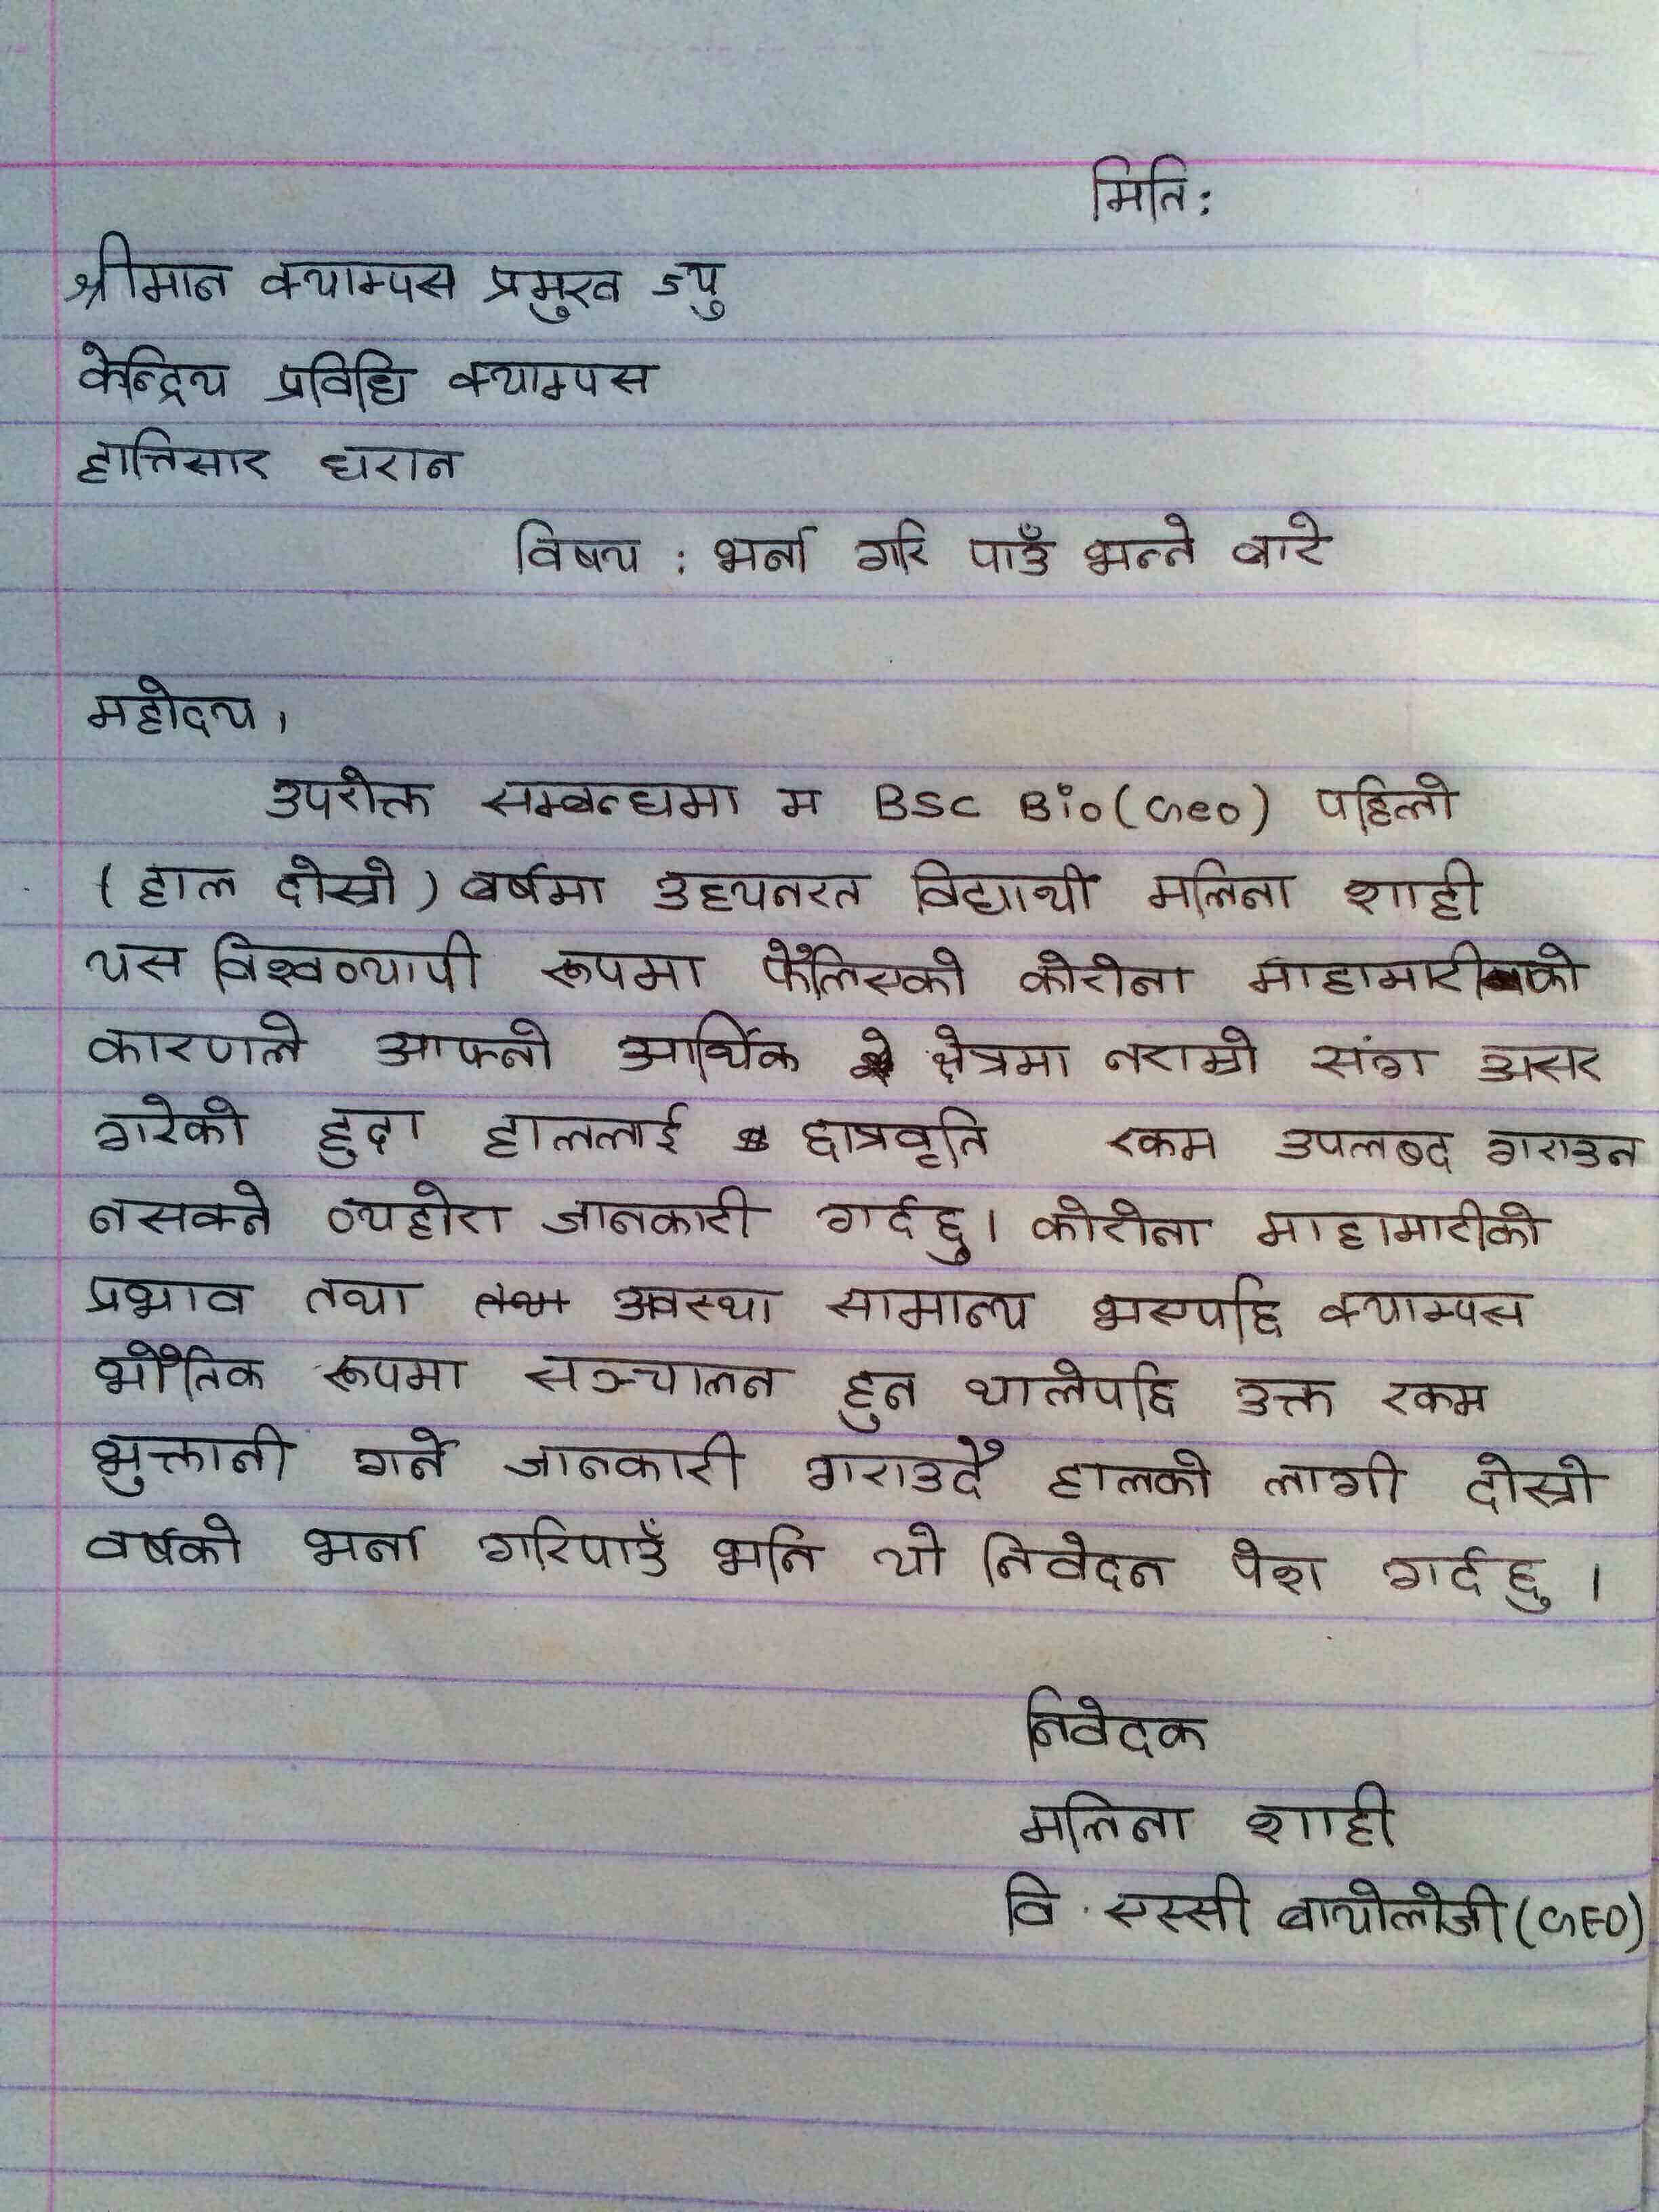 मिति:
श्रीमान क्याम्पस प्रमुख ज्यु
केन्द्रिय प्रविधि क्याम्पस
हात्तिसार धरान
विषय : भर्ना गरि पाउँ भन्ने बारे
महोदय,
उपरोक्त सम्बन्धमा म BSC Bio(Geo) पहिलो
(हाल दोस्रो) वर्षमा अध्यनरत विद्यार्थी मलिना शाही
यस विश्वव्यापी रूपमा फैलिएको कोरोना माहामारीको
कारणले आफ्नो आर्थिक क्षेत्रमा नराम्रो संग असर
गरेको हुदा हाललाई छात्रवृति रकम उपलब्द गराउन
नसक्ने व्यहोरा जानकारी गर्दछु। कोरोना माहामारीको
प्रभाव तथा अवस्था सामान्य भएपछि क्याम्पस
भौतिक रूपमा सञ्चालन हुन थालेपछि उक्त रकम
भुक्तानी गर्ने जानकारी गराउदै हालको लागी दोस्रो
वर्षको भर्ना गरिपाउँ भनि यो निवेदन पेश गर्दछु ।
निवेदक
मलिना शाही
वि. एस्सी बायोलोजी (GEO)